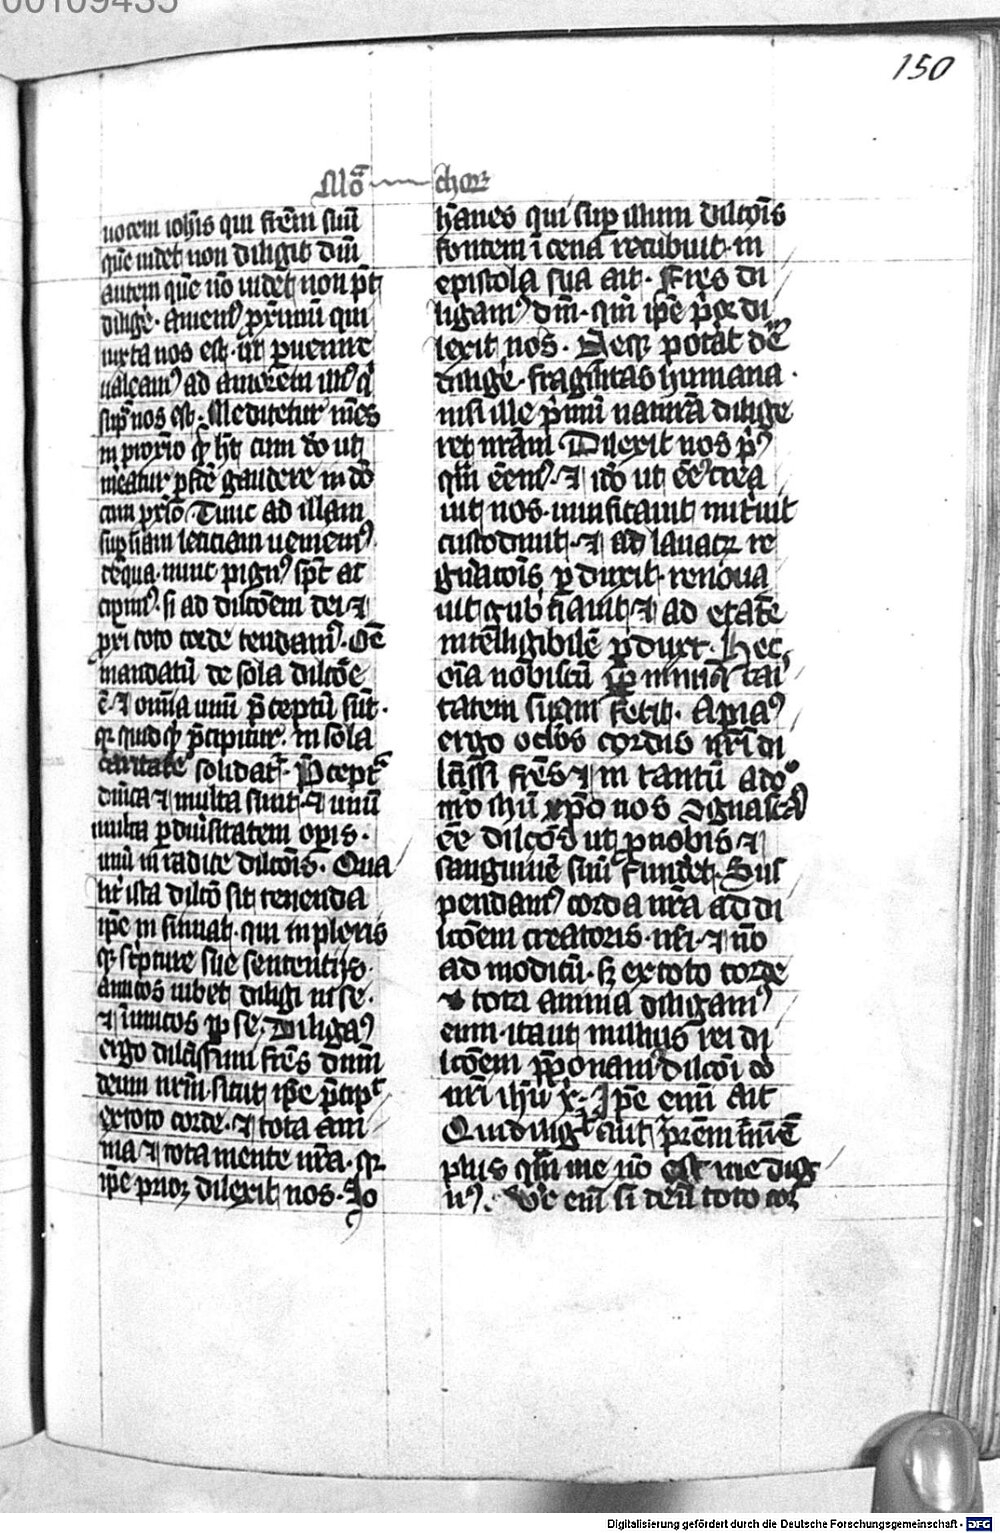 00109435
150
Mo chor
uocem iohis qui frem suu
que uidet non diligit dm
autem que no uidet non pt
dilige. Amem proximu qui
iuxta nos est. ut puenire
ualeam ad amorem illi q
sup nos est. Meditetur mens
in proximo q ht cum do ut
meatur pfte gaudere in do
cum proximo. Tunc ad illam
leticiam ueniem
nunc pign spt ac
cipim. si ad dilcoem dei et
pri toto corde tendam. Oe
mandatu de sola dilcoe
e. et omnia unu pceptu sut.
qr quid q pcipitur. in sola
caritate solidat. Pcept
dnica et multa sunt. et unu
multa p diusitatem opis.
unu in radice dilcois. Qua
lit ista dilco sit tenenda
ipe insinuat. qui in pleris
q scpture sue sententijs.
amicos iubet diligi in se.
et inimicos pp se. Diligam
ergo dilcissimi fres dnm
deum nrm. sicut ipe pcip
ex toto corde. et tota ani
ma et tota mente nra. qr
ipe prior dilexit nos. Jo
hanes qui sup illum dilcois
fontem i cena recubuit. in
epistola sua ait. Fres di
ligam dm. qm ipe por di
lexit nos. Neq potat dm
dilige. fragilitas humana.
nisi ille pmu natura dilige
ret nram. Dilexit nos p
qm eem. et ido ut eem crea
uit nos. uiuificauit nutriuit
custodiuit. et ad lauacr re
gnacois pduxit. renoua
uit gubnauit et ad etate
intelligibile pduxit. Hec
oia nobiscu pp nimia cari
tatem suam fecit. Apiam
ergo oclos cordis nri di
lcissi fres et in tantu a do
nro ihu xpo nos cognoscam
ee dilcos ut p nobis et
sanguine suu funderet. Sus
pendam corda nra ad di
lcoem creatoris nri. et no
ad modicu. sz ex toto corde
et tota anima diligam
eum. ita ut nullius rei di
lcoem pponam dilcoi do
nri ihu x. Ipe enim ait
Qui dilig aut prem aut mrem
plus qm me no est me dig
n. Ve eni si deu toto cor
Digitalisierung gefördert durch die Deutsche Forschungsgemeinschaft - DFG